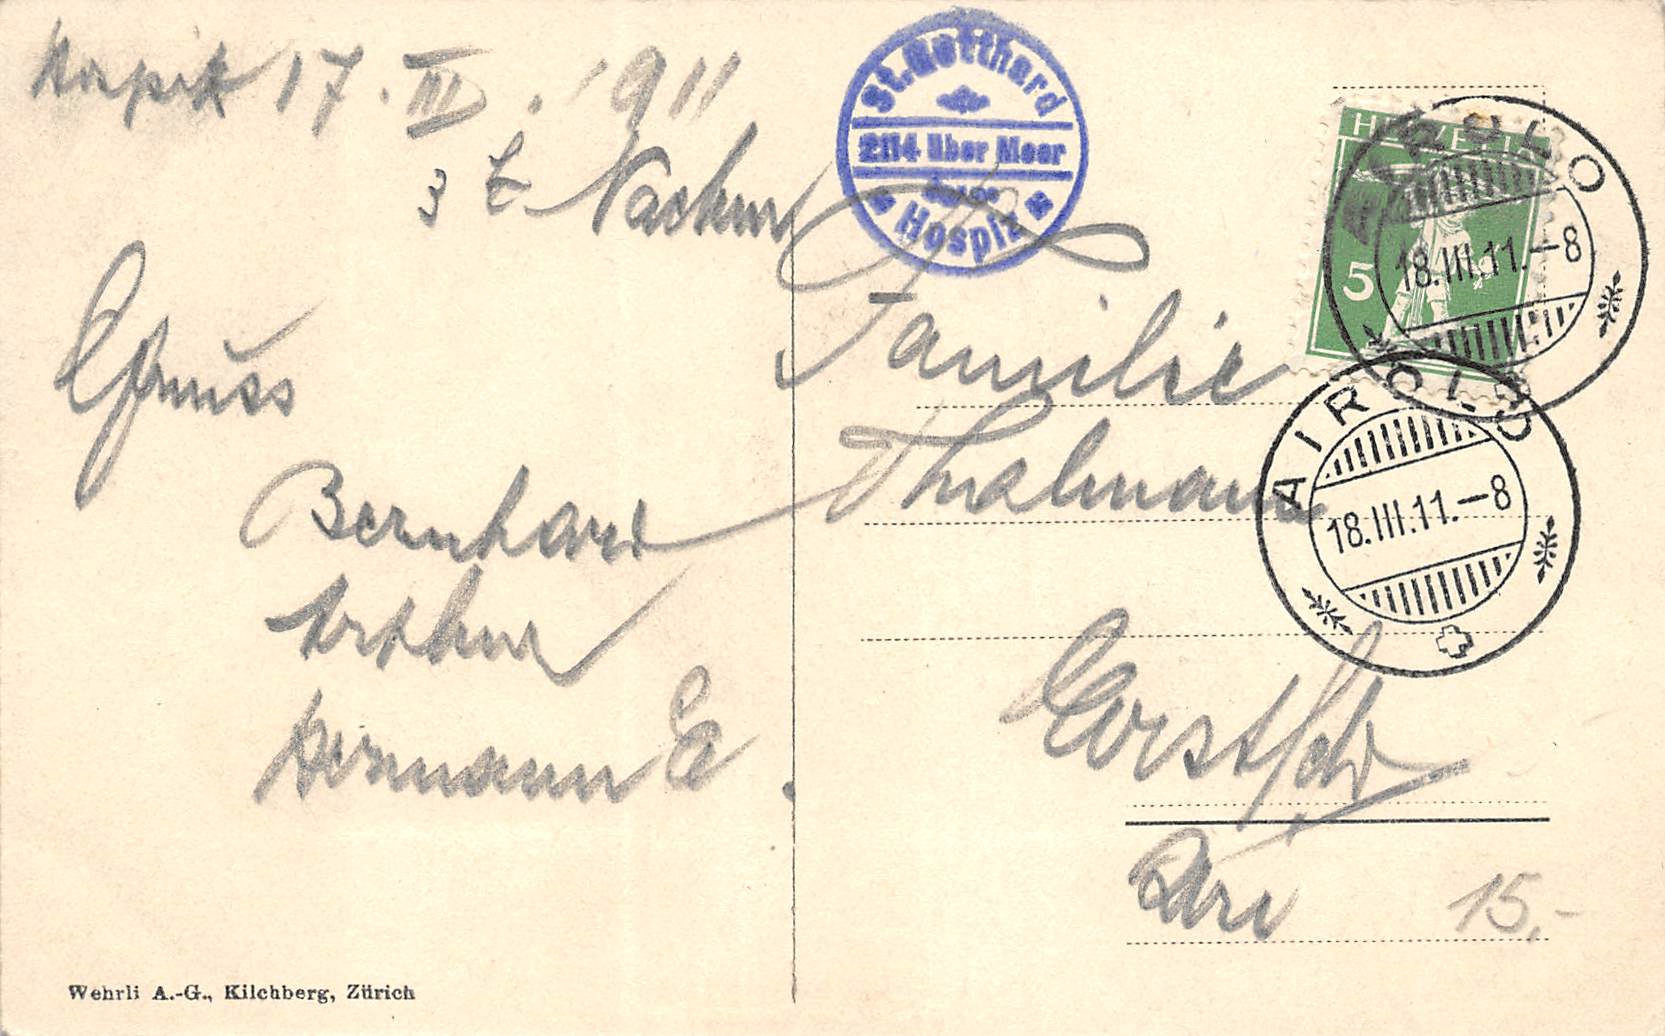 Hospitz 17. III. 1911
3 t. Nachm
Gruss
Bernhard
Arthur
Hermann E.
St. Gotthard
2114 über Meer
Hospiz
HELVETIA
5
AIROLO
18.III.11.-8
AIROLO
18.III.11.-8
Familie
Thalmann
Uri
15.-
Wehrli A.-G., Kilchberg, Zürich